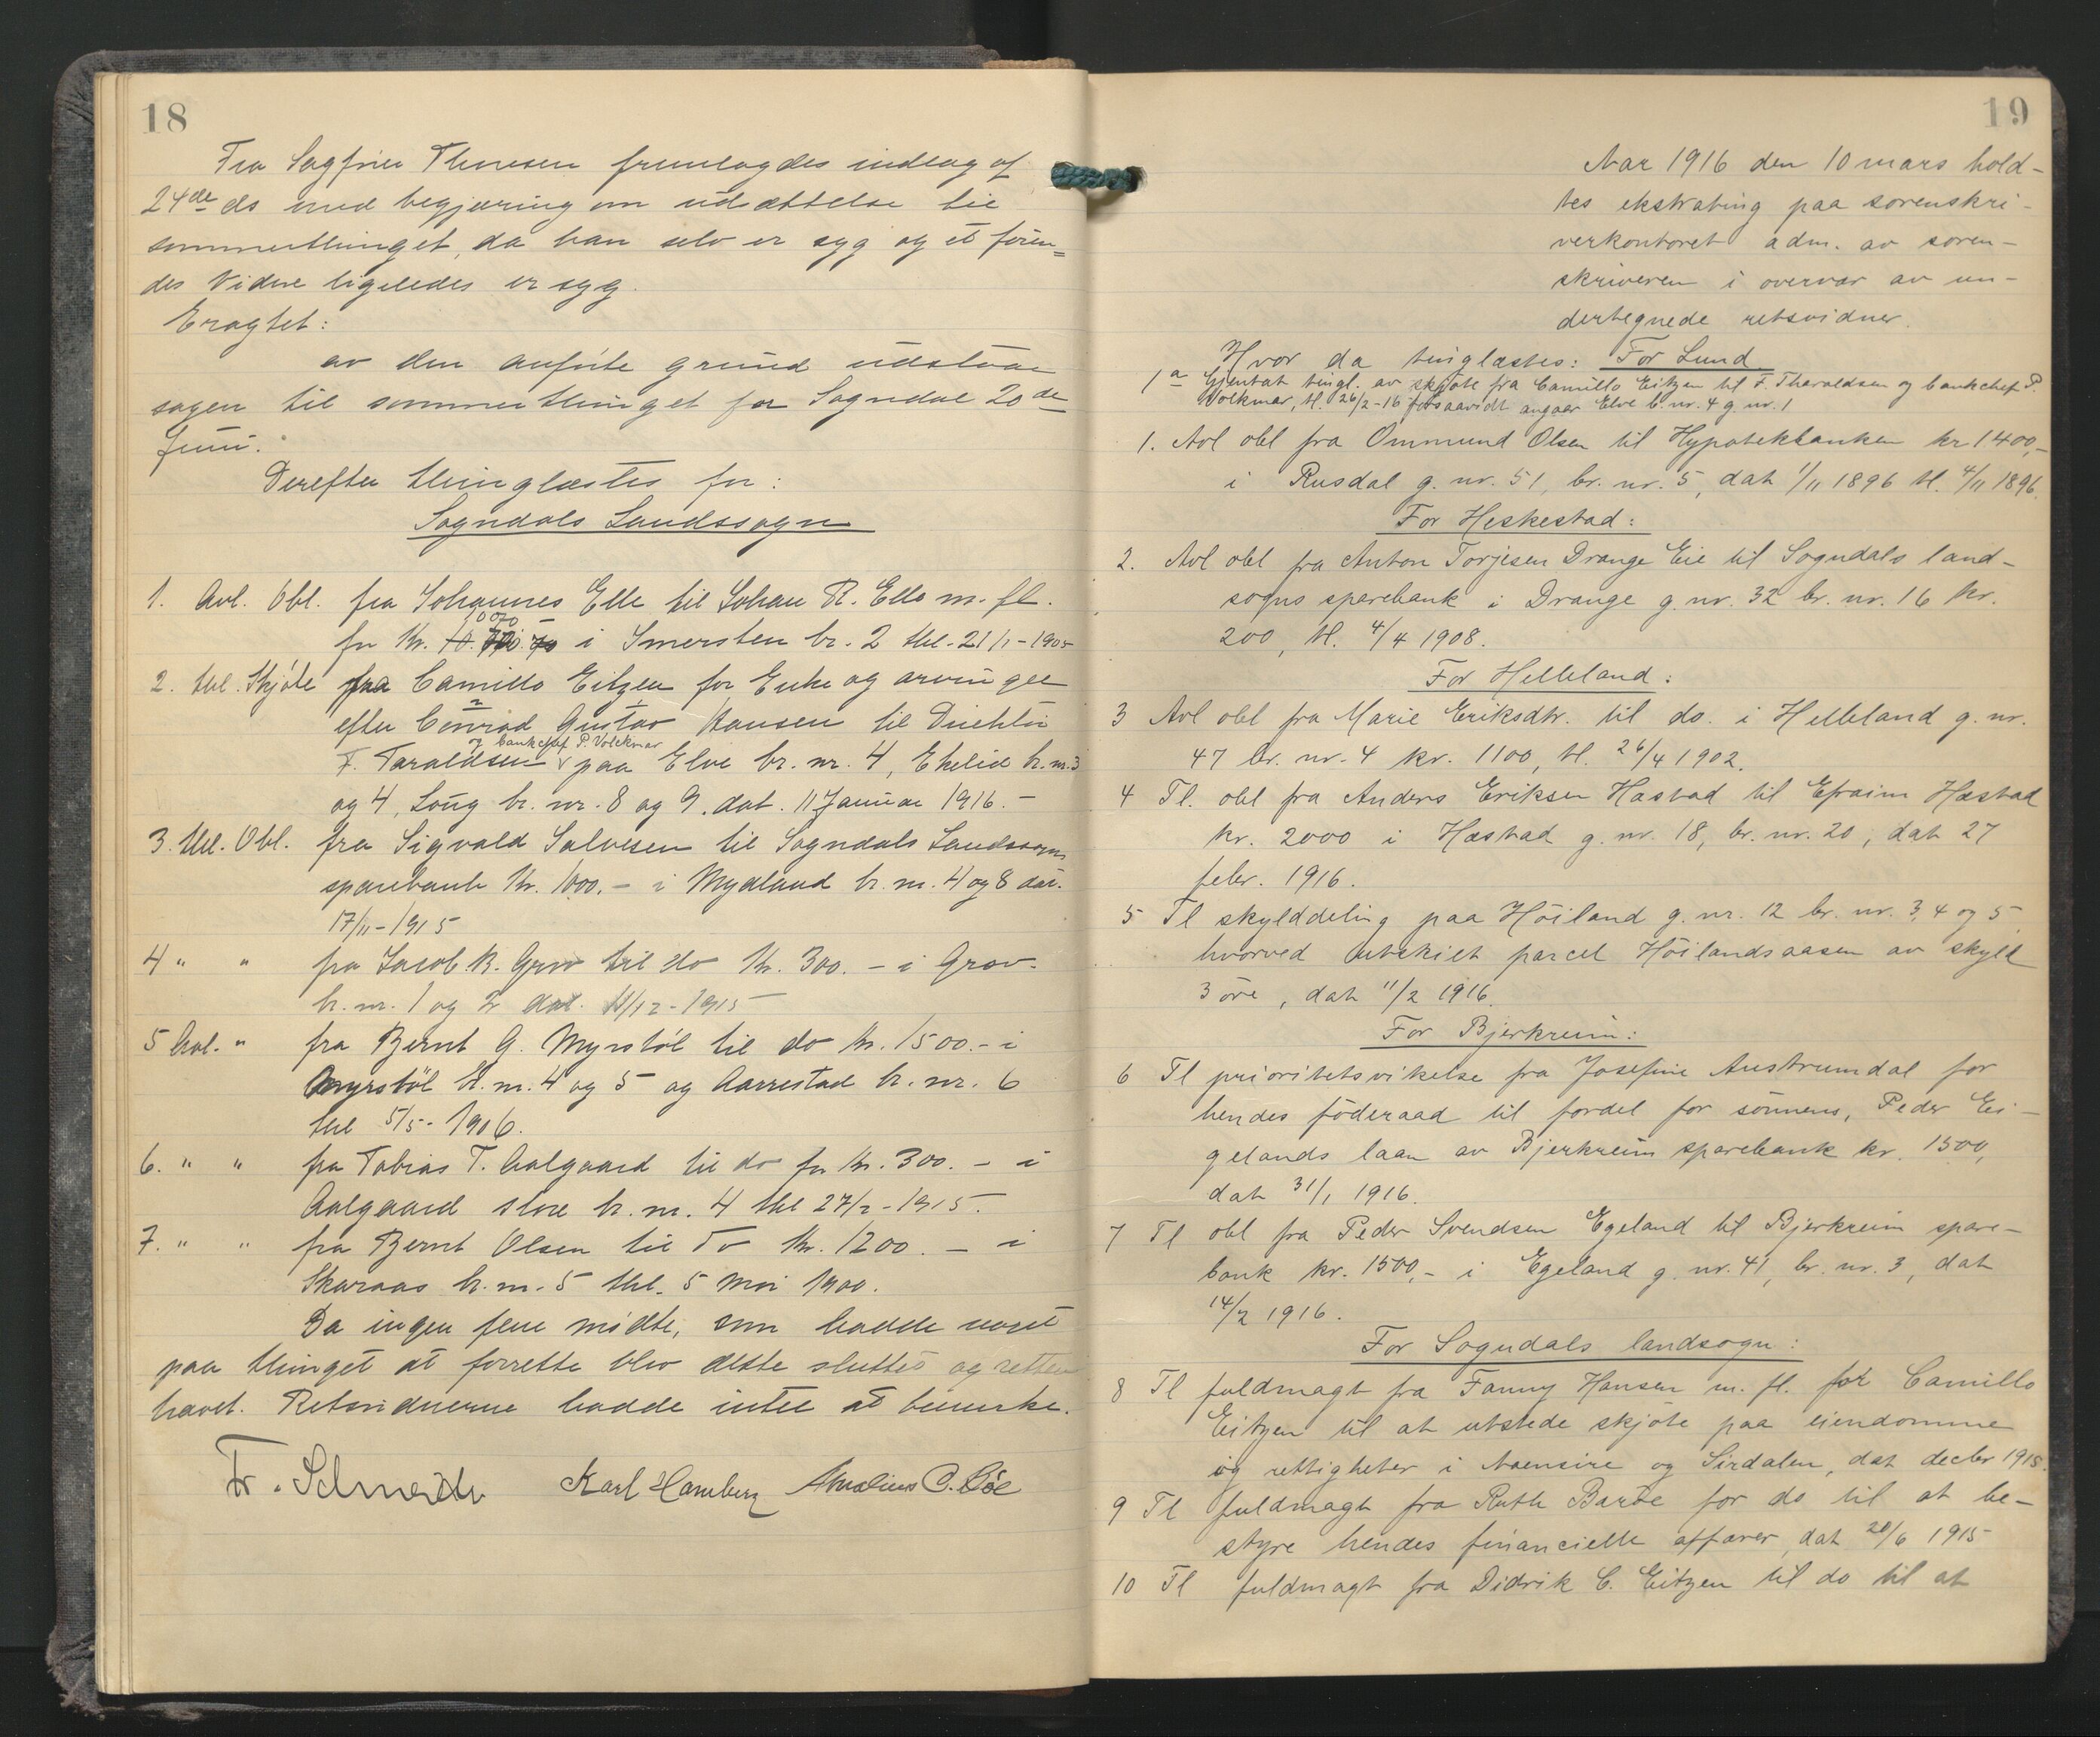 18
Fra Sagfører Thuesen fremlagdes indlæg af
24de ds med begjæring om udsættelse til
sommerthinget, da han selv er syg og et
des Vidne ligeledes er syg.
Eragtet:
av den anførte grund udstaar
sagen til sommerthinget for Sogndal 20de
Juni.
Derefter thinglæstes for:
Sogndals Landssogn
1. Avl. Obl. fra Johannes Elle til Johan R. Elle m. fl.
for Kr. i br. 2 thl. 21/1-1905
2. thl. Skjøte fra Camillo Eitzen for Enke og arvinger
efter Conrad Gustav Hansen til Direktør
og bankchef P. Volckmar
F. Taraldsen paa Elve br. nr. 4, Ekelid br. nr. 3
og 4, Loug br. nr. 8 og 9. dat. 11 Januar 1916.-
3. thl. Obl. fra Sigvald Salvesen til Sogndals Landssogns
sparebank Kr. 1000.- i Mydland br. nr. 4 og 8 dat.
17/11-1915
4 " " fra Jacob K. Grov til do Kr. 300.- i Grov
br. nr. 1 og 2 dat. 11/12-1915
5 Avl. " fra Bernt G. Myrstøl til do Kr. 1500.- i
Myrstøl br. nr. 4 og 5 og Aarrestad br. nr. 6
thl 5/5-1906.
6. " " fra Tobias T. Aalgaard til do for Kr. 300.- i
Aalgaard store br. nr. 4 thl 27/2-1915.
7. " " fra Bernt Olsen til do Kr. 1200.- i
Skaraas br. nr. 5 thl. 5 Mai 1900.
Da ingen flere mødte, som hadde noget
paa thinget at forrette blev dette sluttet og retten
hævet. Retsvidnerne hadde intet at bemerke.
Fr. Schneider Karl Hamberg C. Bøe
19
Aar 1916 den 10 mars hold-
tes ekstrating paa sorenskri-
verkontoret adm. av soren-
skriveren i overvær av un-
dertegnede retsvidner.
Hvor da tinglæstes: For Lund
1a Gjentat tingl. av skjøte fra Camillo Eitzen til F. Tharaldsen og bankchef P.
Volkmar, tl. 26/2-16 forsaavidt angaar Elve b. nr. 4 g. nr. 1
1. Avl obl fra Ommund Olsen til Hypotekbanken kr 1400,-
i Rusdal g. nr. 51, br. nr. 5, dat 1/11 1896 tl. 4/11 1896.
For Heskestad:
2. Avl obl fra Anton Torjesen Drange Eie til Sogndals land-
sogns sparebank i Drange g. nr. 32 br. nr. 16 kr.
200, tl. 4/4 1908.
For Helleland:
3 Avl obl fra Marie Eriksdtr. til do. i Helleland g. nr.
47 br. nr. 4 kr. 1100, tl. 26/4 1902.
4 Tl. obl fra Anders Eriksen Hæstad til Efraim Hæstad
kr. 2000 i Hæstad g. nr. 18, br. nr. 20, dat 27
febr. 1916.
5 Tl skylddeling paa Höiland g. nr. 12 br. nr. 3, 4 og 5
hvorved utskilt parcel Höilandsaasen av skyld
3 øre, dat 11/2 1916.
For Bjerkreim:
6 Tl prioritetsvikelse fra Josefine Austrumdal for
hendes föderaad til fordel for sönnens, Peder Ei-
gelands laan av Bjerkreim sparebank kr. 1500,
dat 31/1 1916.
7 Tl obl fra Peder Svendsen Egeland til Bjerkreim spare-
bank kr. 1500,- i Egeland g. nr. 41, br. nr. 3, dat
14/2 1916.
For Sogndals landsogn:
8 Tl fuldmagt fra Fanny Hansen m. fl. for Camillo
Eitzen til at utstede skjöte paa eiendomme
og rettigheter i Aaensire og Sirdalen, dat decbr 1915.
9 Tl fuldmagt fra Ruth Barbe for do til at be-
styre hendes financielle affærer, dat 28/6 1915
10 Tl fuldmagt fra Didrik C. Eitzen til do til at